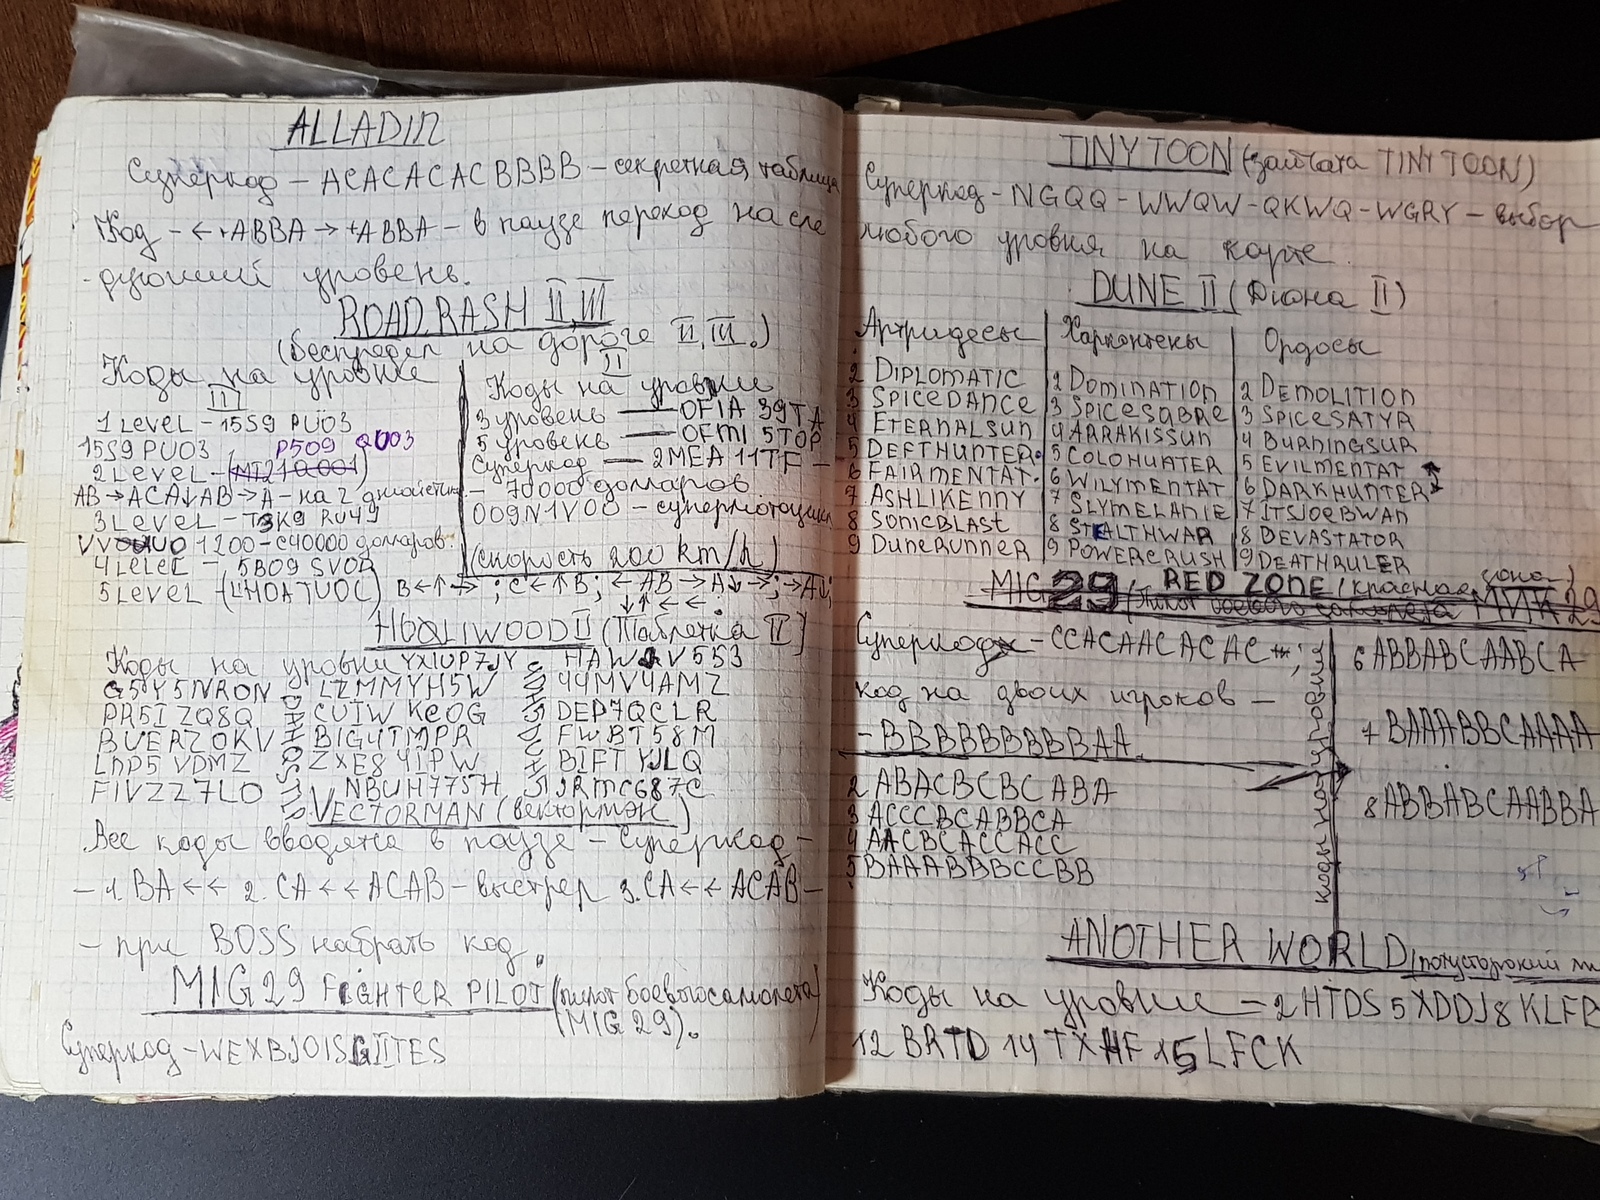 ALLADIN
Суперкод - ACACACACBBBB - секретная таблица
Код - ←+ABBA→+ABBA - в паузе переход на сле
дующий уровень.
ROAD RASH II, III
(беспредел на дороге II, III.)
Коды на уровне
III
1 LEVEL - 15S9 PU03
15S9 PU03 ( P509 QU03
2 LEVEL -
AB→ACA↓AB→A - на 2 джойстик
3 LEVEL - T3K9 RU49
1200 - с40000 доларов.
4 LELEL - 5B09 SVOP
5 LEVEL (LHOATUOC) B←↑→ ; C←↑B; ←AB→A↓→; →A↓;
↓↑←←.
II
Коды на уровни
3 уровень — OFIA 39TA
5 уровень — OFMI 5TOP
Суперкод — 2MEA 11TF -
- 70000 долларов
009N1V00 - супермотоцикл
(скорость 200 km/h)
HOOLIWOOD II (Таблетка II)
Коды на уровни YX1UP7JY HAW V553
G5Y5NRON LZMMYH5W 44MV4AMZ
PR5I ZQ8Q CUIW KCOG DEP7QCLR
BUERZOKV BIG4TMPR FWBT58M
LNP5 VDMZ ZXE84IPW BIFTYJLQ
FIVZZ7LO NBUH775H JRMC687C
VECTORMAN (векторман)
Все коды вводятся в паузе - Суперкод -
- 1. BA←← 2. CA←←ACAB - выстрел 3. CA←←ACAB -
- при BOSS набрать код.
MIG 29 FIGHTER PILOT (пилот боевогосамолета
(MIG 29).
Суперкод - WEXBJOISGIITES
TINY TOON (зайчата TINY TOON)
Суперкод - NGQQ - WWQW - QKWQ - WGRY - выбор
любого уровня на карте.
DUNE II (Дюна II)
Артридесы Харконнены Ордосы
2 DIPLOMATIC 2 DOMINATION 2 DEMOLITION
3 SPICEDANCE 3 SPICESABRE 3 SPICESATYR
4 ETERNALSUN 4 ARRAKISSUN 4 BURNINGSUR
5 DEFTHUNTER. 5 COLOHUNTER 5 EVILMENTAT
6 FAIRMENTAT. 6 WILYMENTAT 6 DARKHUNTER
7 ASHLIKENNY 7 SLYMELANIE 7 ITSJOEBWAN
8 SONICBLAST 8 STEALTHWAR 8 DEVASTATOR
9 DUNERUNNER 9 POWERCRUSH 9 DEATHRULER
MIG 29 / RED ZONE (красная зона)
МИГ 29
Суперкод - CCACAACACAC
код на двоих игроков -
- BBBBBBBBBBAA
2 ABACBCBCABA
3 ACCCBCABBCA
4 AACBCACCACC
5 BAAABBBCCBB
коды на уровни
6 ABBABCAABCA
7 BAAABBCAAAA
8 ABBABCAABBA
ANOTHER WORLD (потусторонний ми
Коды на уровне - 2 HTDS 5 XDDJ 8 KLFB
12 BRTD 14 TXHF 15 LFCK